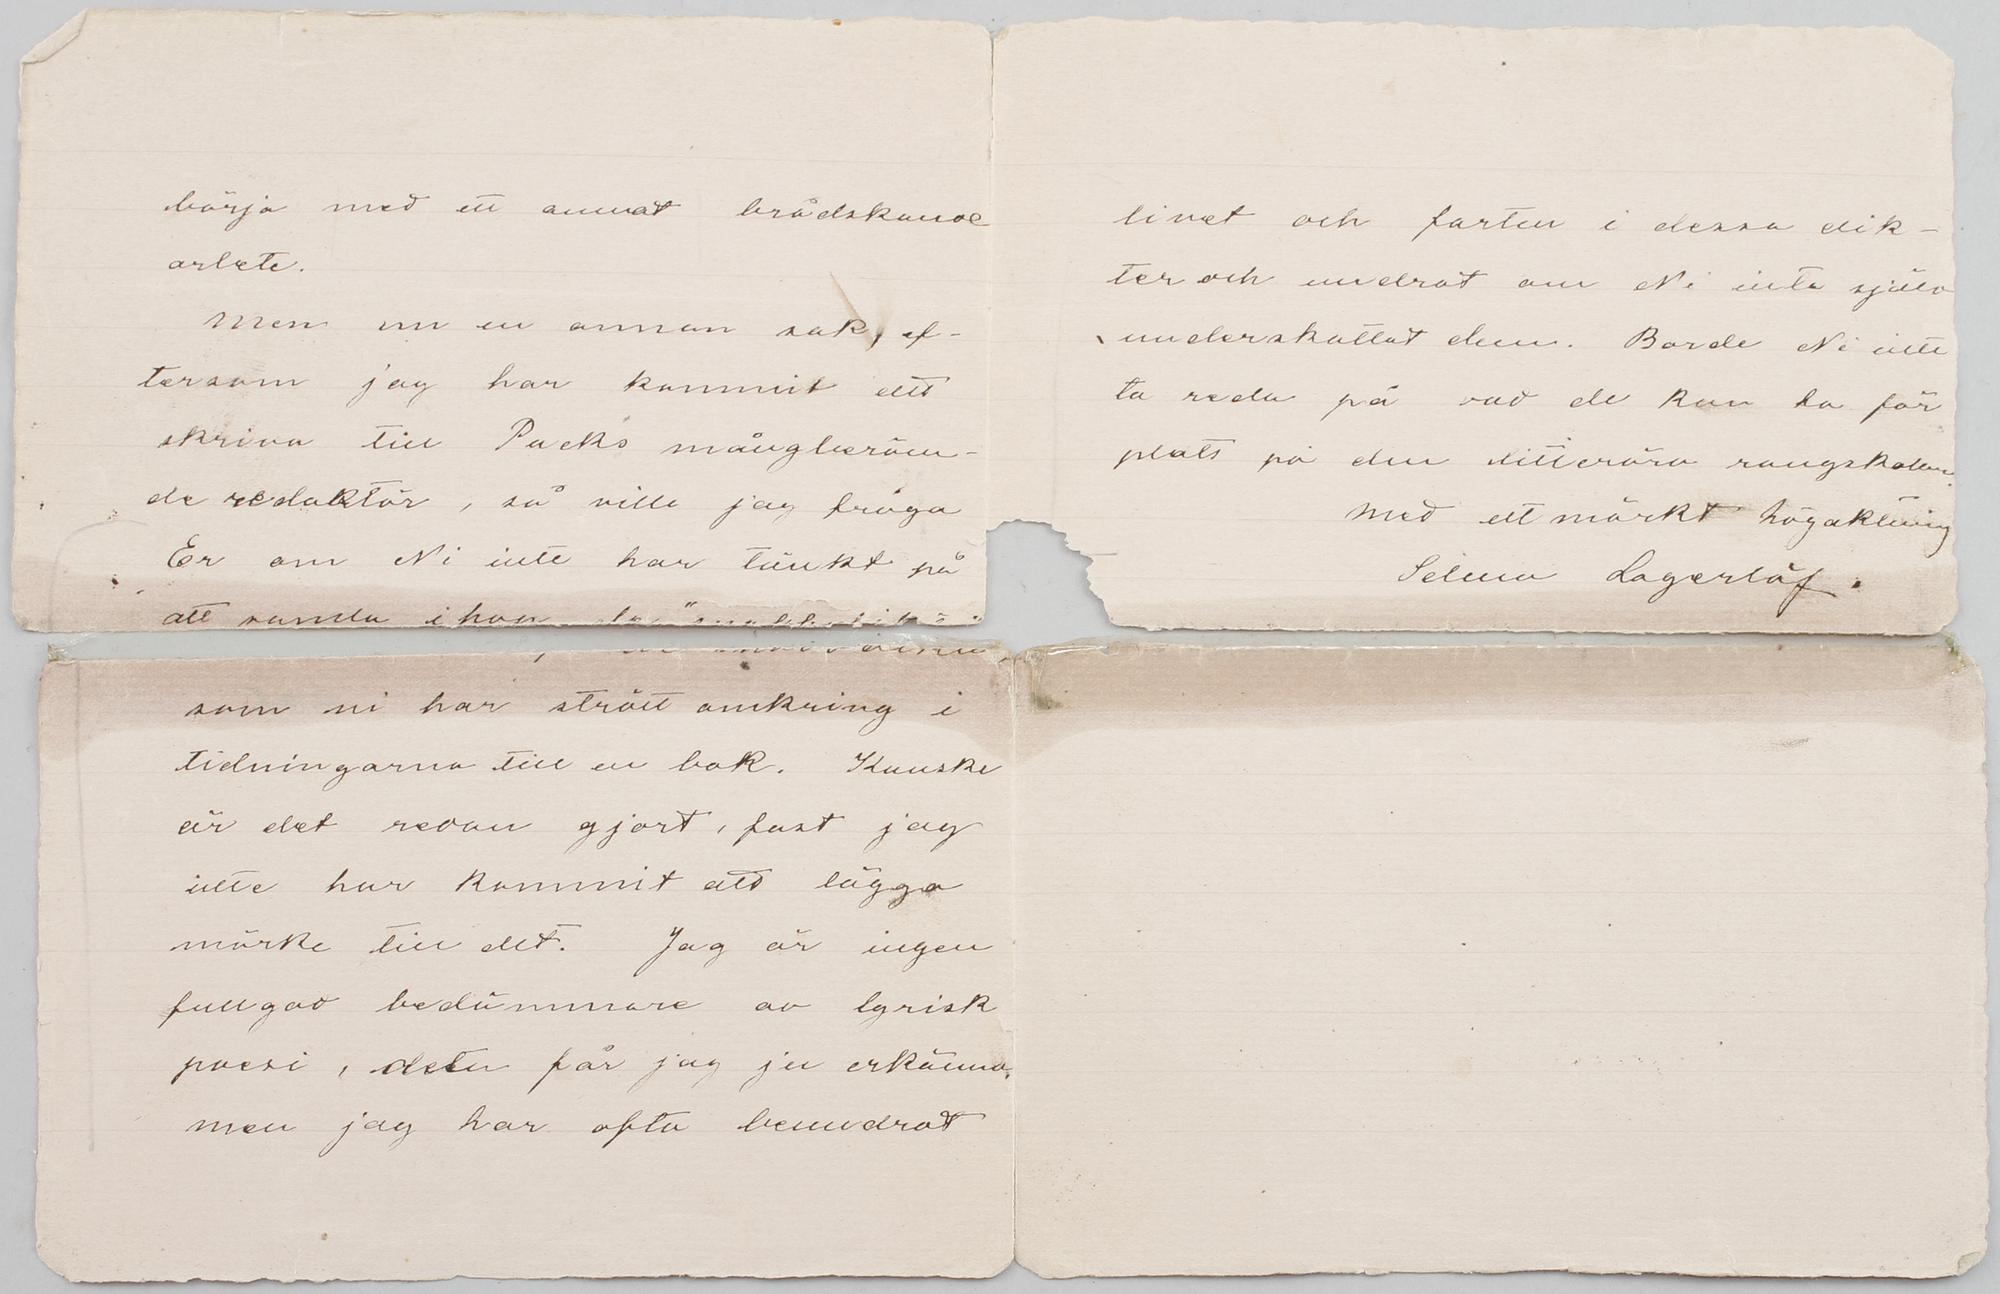 börja med ett annat brådskande
arbete.
Men nu en annan sak, ef-
tersom jag har kommit att
skriva till Pucks mångberöm-
de redaktör, så ville jag fråga
Er om Ni inte har tänkt på
att samla ihop
som ni har strött omkring i
tidningarna till en bok. Kanske
är det redan gjort, fast jag
inte har kommit att lägga
märke till det. Jag är ingen
fullgod bedömmare av lyrisk
poesi, detta får jag ju erkänna,
men jag har ofta beundrat
livet och farten i dessa dik-
ter och undrat om Ni inte själv
underskattat dem. Borde Ni inte
ta reda på vad de kan ha för
plats på den litterära rangskalan.
Med utmärkt högaktning
Selma Lagerlöf.